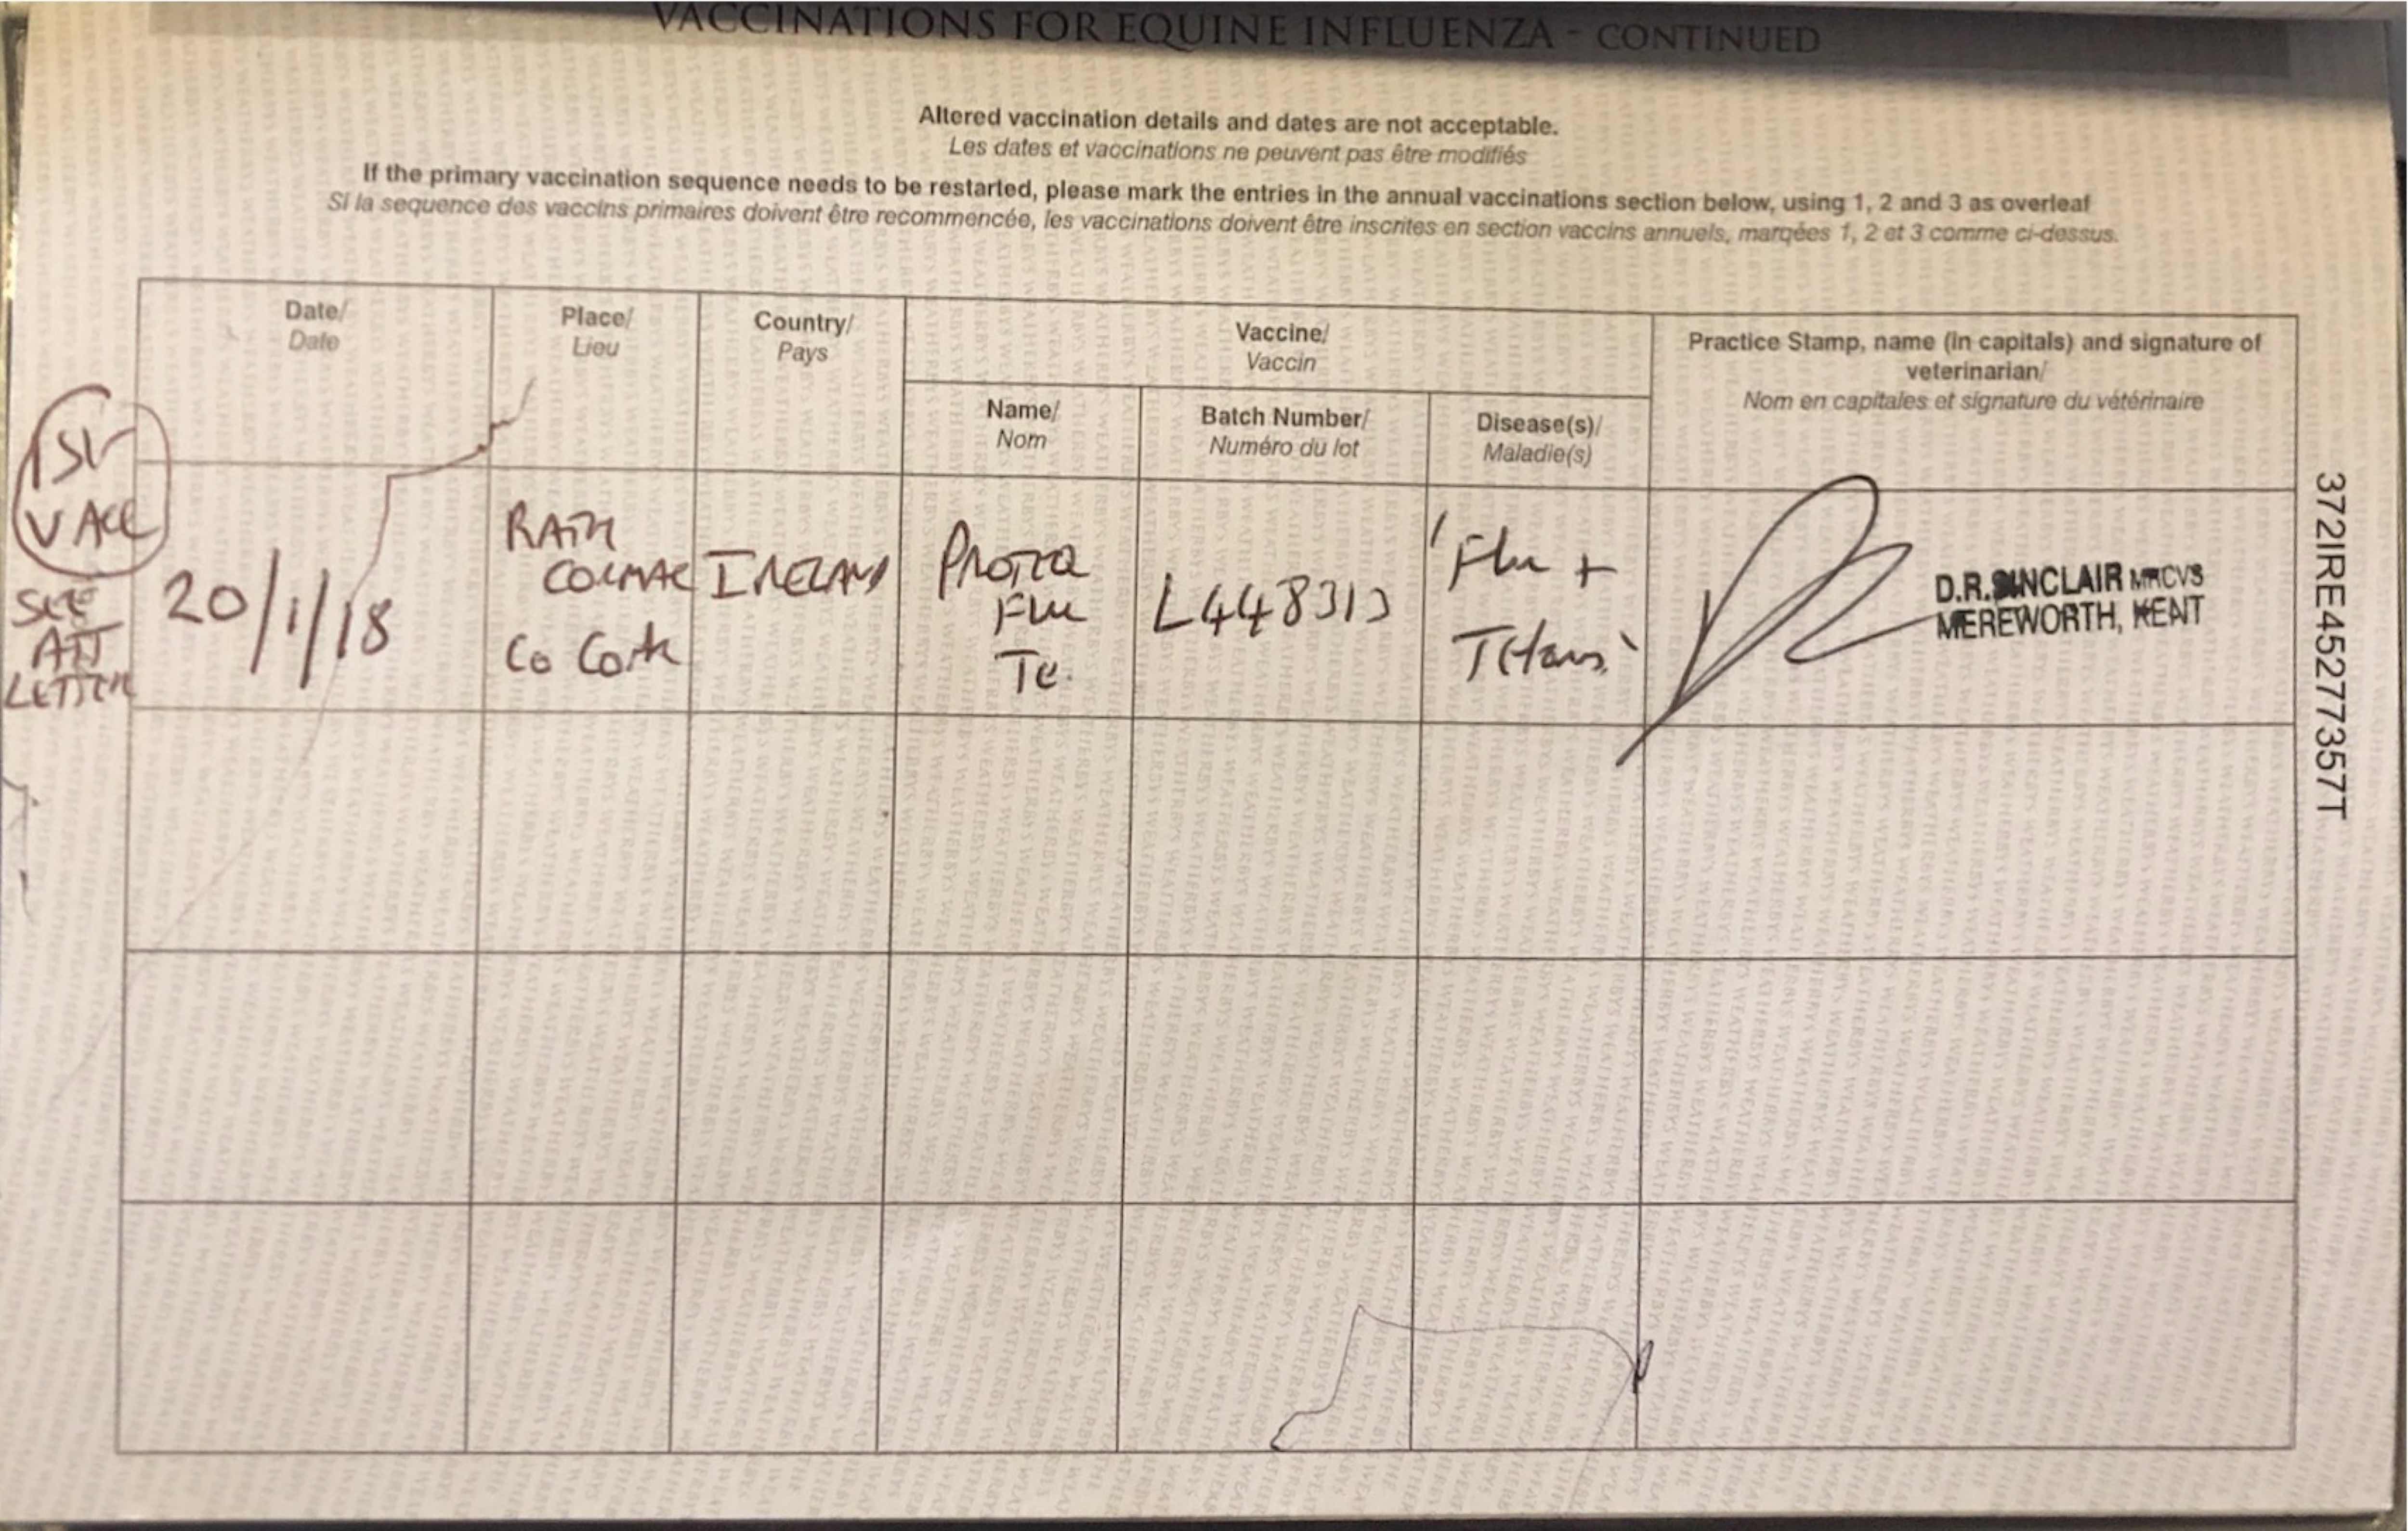 VACCINATIONS FOR EQUINE INFLUENZA - CONTINUED
Altered vaccination details and dates are not acceptable.
Les dates et vaccinations ne peuvent pas être modifiés
If the primary vaccination sequence needs to be restarted, please mark the entries in the annual vaccinations section below, using 1, 2 and 3 as overleaf
Si la sequence des vaccins primaires doivent être recommencée, les vaccinations doivent être inscrites en section vaccins annuels, marqées 1, 2 et 3 comme ci-dessus.
Date/
Date
Place/
Lieu
Country/
Pays
Vaccine/
Vaccin
Name/
Nom
Batch Number/
Numéro du lot
Disease(s)/
Maladie(s)
Practice Stamp, name (in capitals) and signature of
veterinarian/
Nom en capitales et signature du vétérinaire
1ST
VACC
SEE
ATT
LETTER
20/1/18
RATH
CORMAC
Co Cork
IRELAND
Proteq
Flu
Te.
'Flu +
D.R.SINCLAIR MRCVS
MEREWORTH, KENT
372IRE45277357T